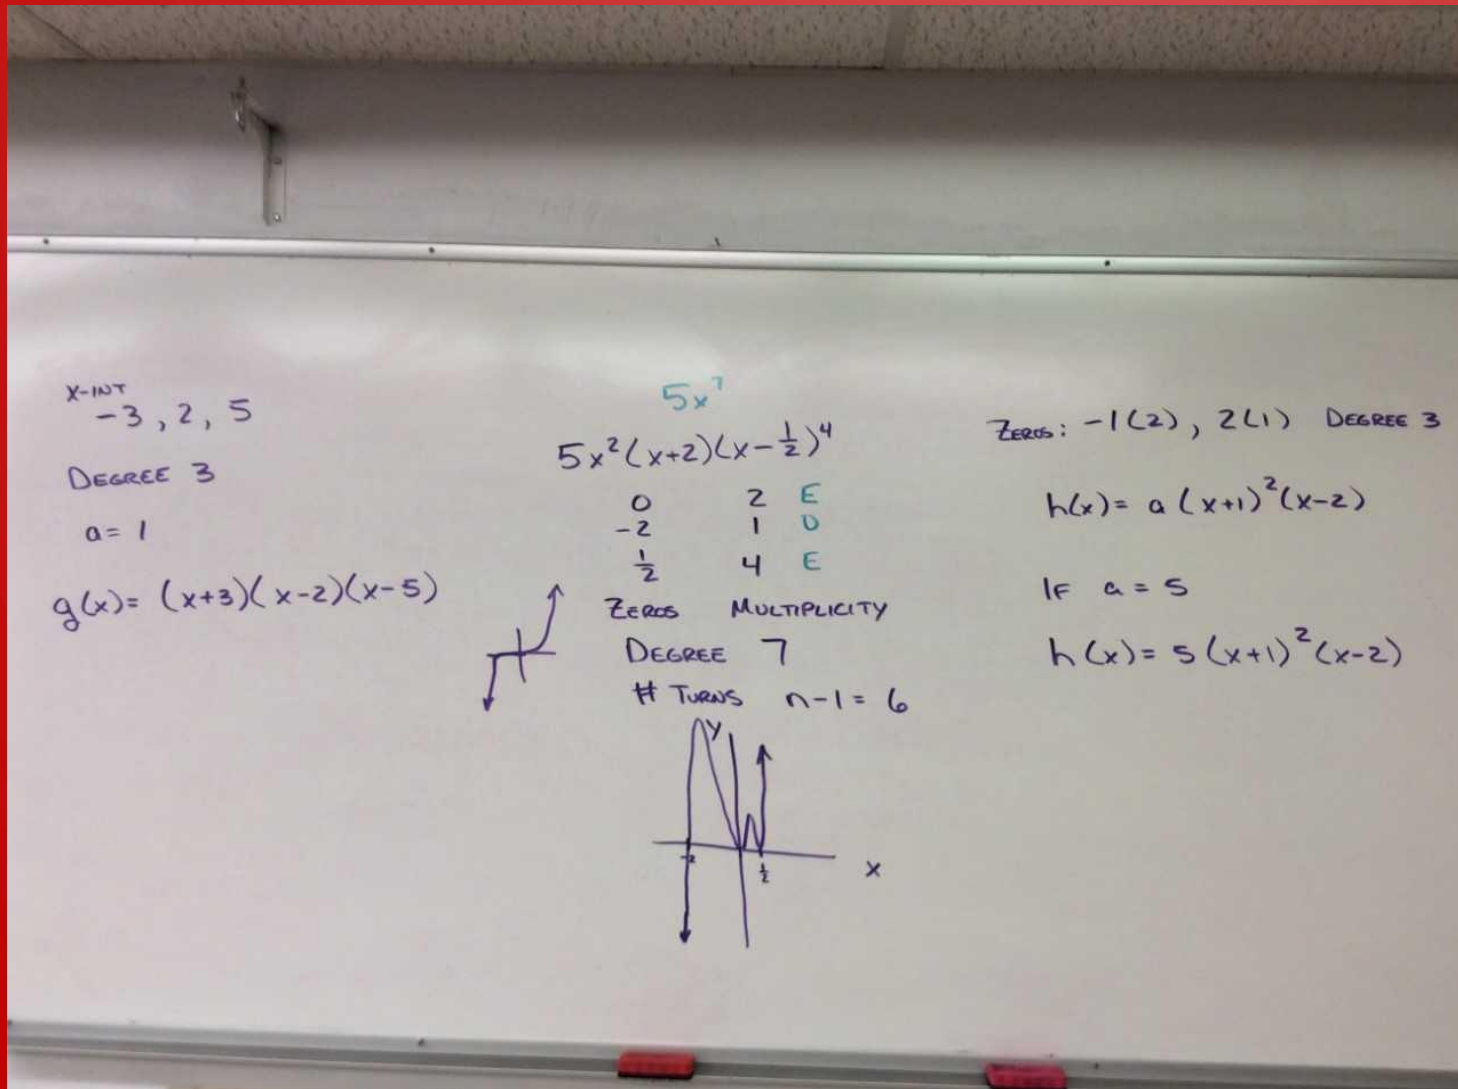 X-INT
-3, 2, 5
DEGREE 3
a = 1
g(x) = (x+3)(x-2)(x-5)
5x⁷
5x²(x+2)(x-½)⁴
0 2 E
-2 1 O
½ 4 E
ZEROS MULTIPLICITY
DEGREE 7
# TURNS n-1 = 6
y
-2
½
x
ZEROS: -1(2), 2(1) DEGREE 3
h(x) = a(x+1)²(x-2)
IF a = 5
h(x) = 5(x+1)²(x-2)